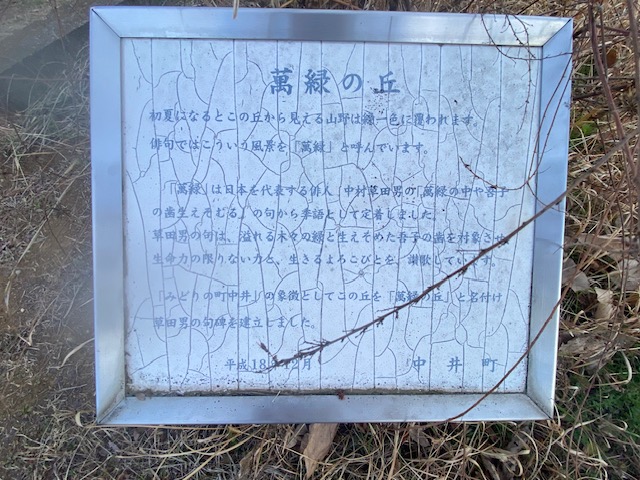 萬緑の丘
初夏になるとこの丘から見える山野は緑一色に覆われます。
俳句ではこういう風景を「萬緑」と呼んでいます。
「萬緑」は日本を代表する俳人 中村草田男の「萬緑の中や吾子
の歯生えそむる」の句から季語として定着しました。
草田男の句は、溢れる木々の緑と生えそめた吾子の歯を対象させ
生命力の限りない力と、生きるよろこびとを、讃歌しています。
「みどりの町中井」の象徴としてこの丘を「萬緑の丘」と名付け
草田男の句碑を建立しました。
平成18年12月 中井町